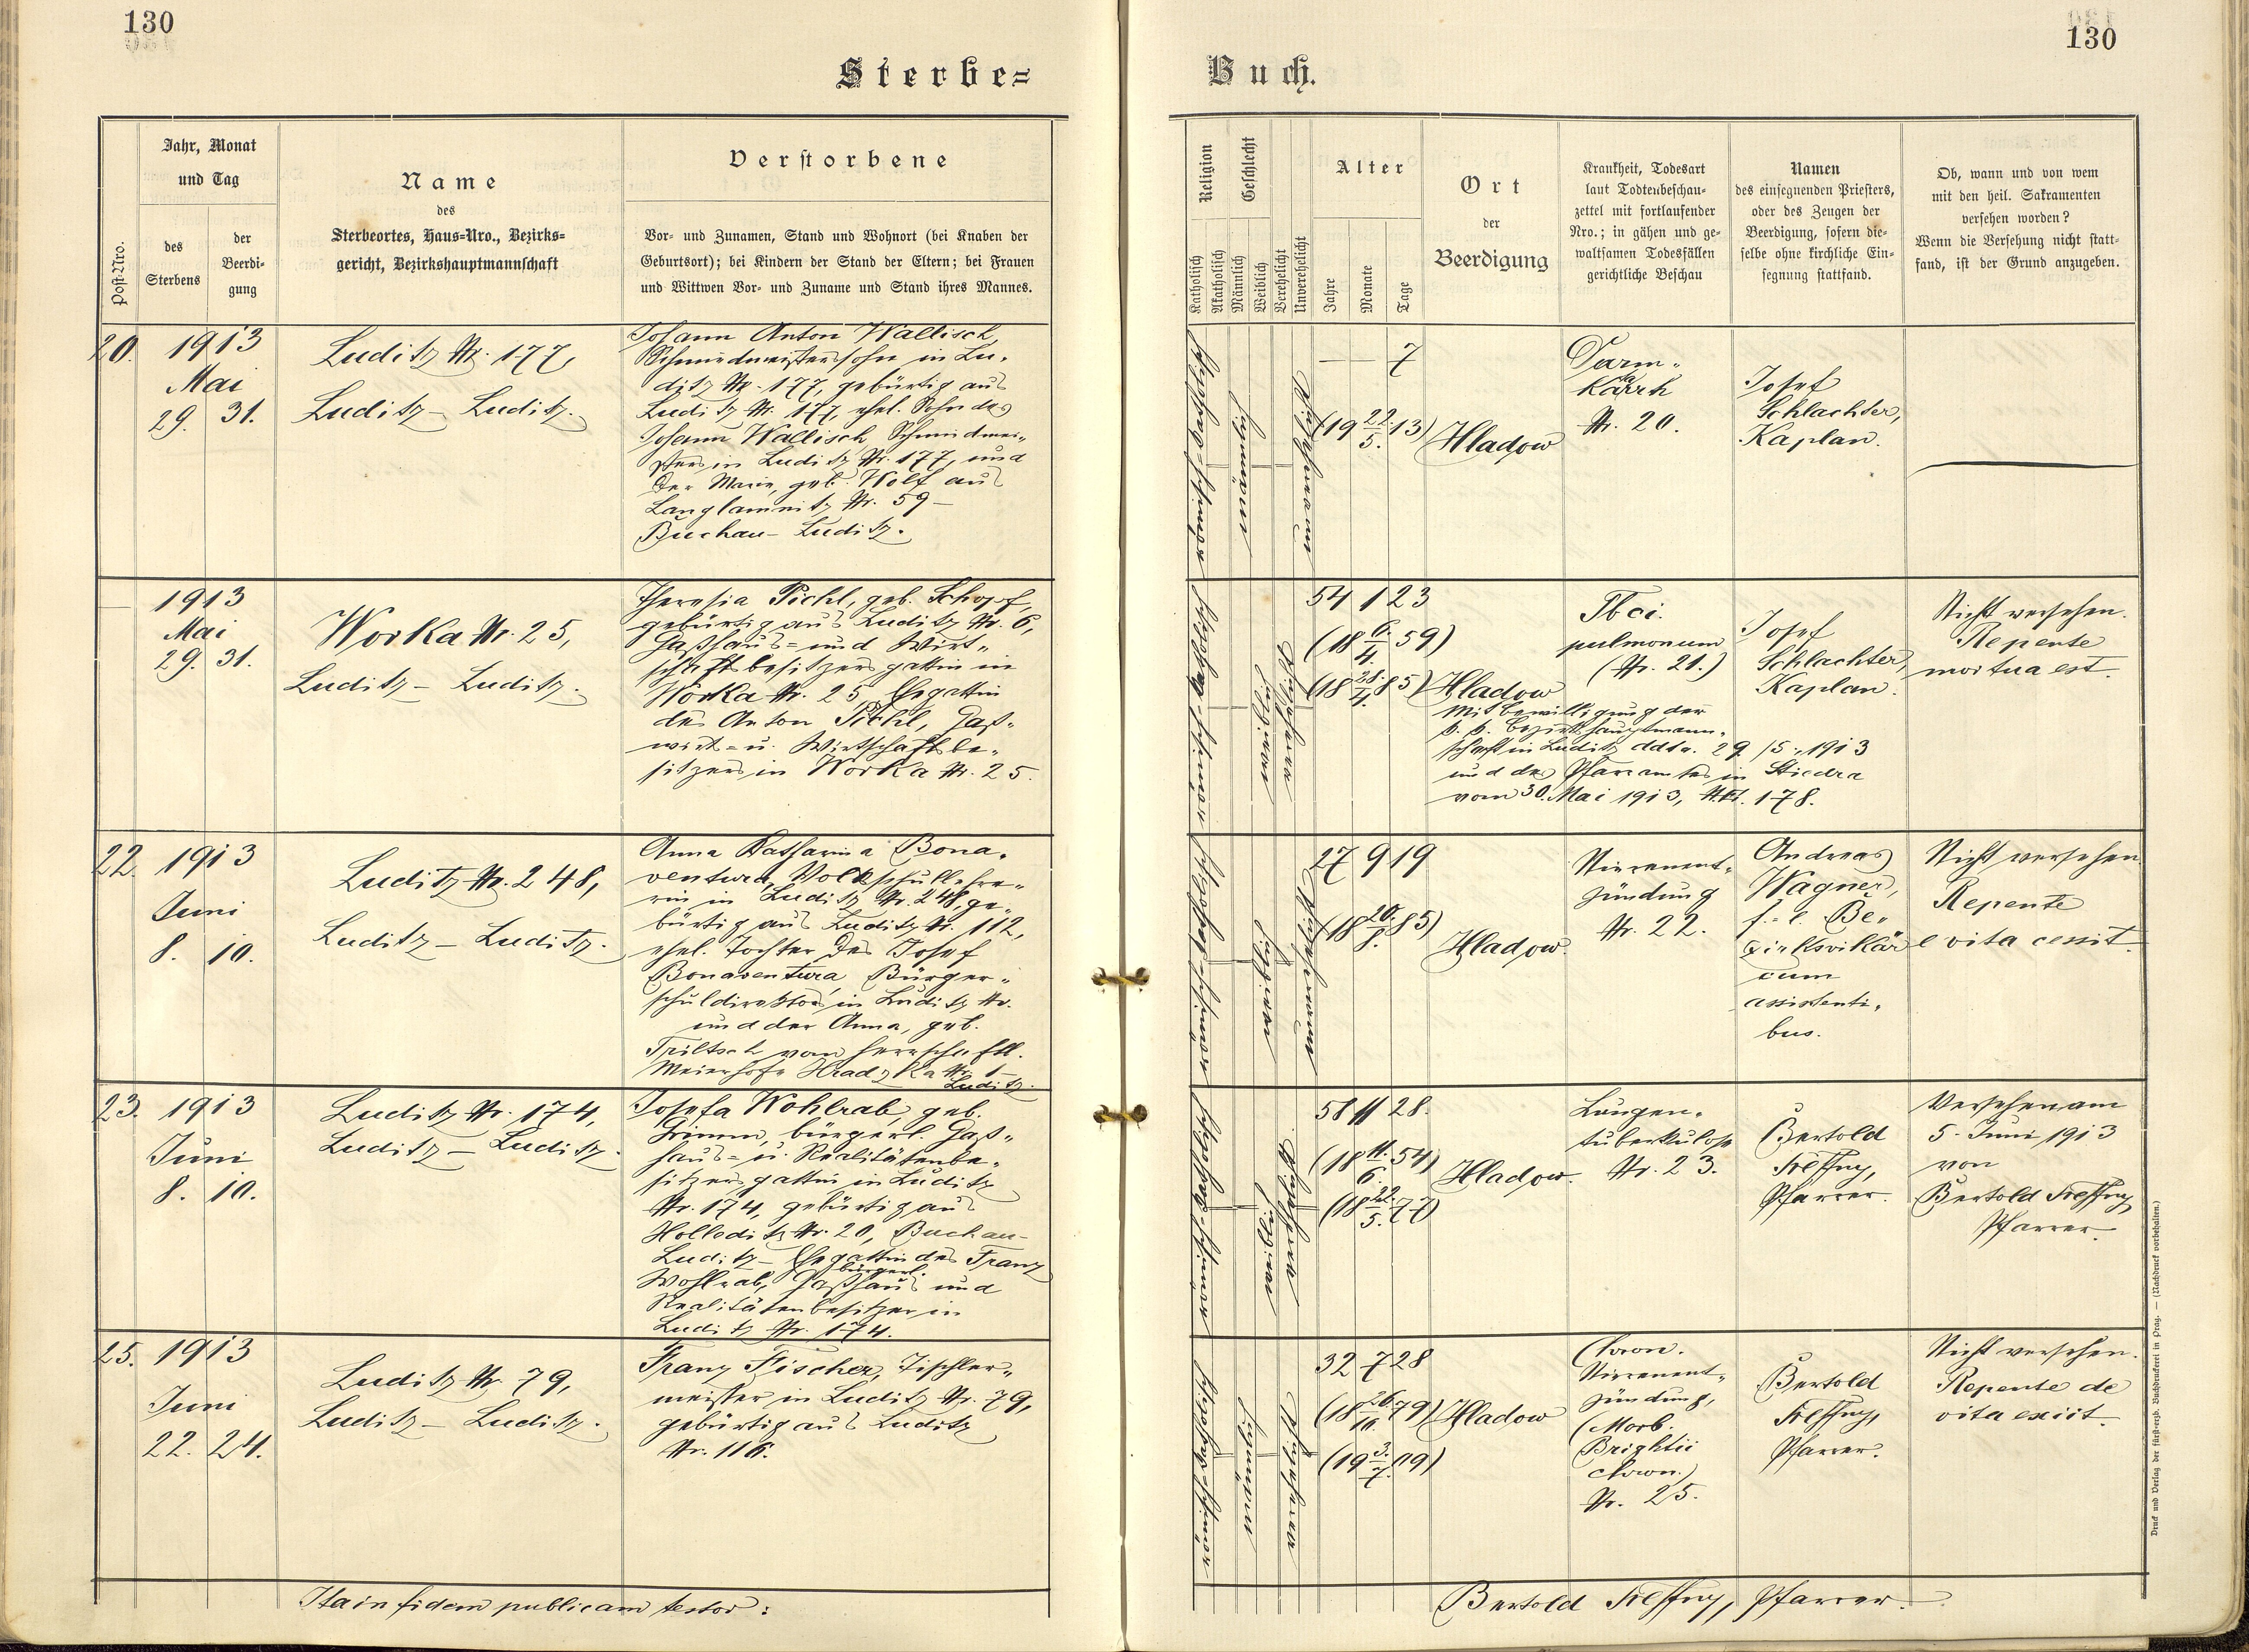 130
130
Sterbe=
Buch.
Post-Nro.
Jahr, Monat
und Tag
des
Sterbens
der
Beerdi-
gung
Name
des
Sterbeortes, Haus=Nro., Bezirks=
gericht, Bezirkshauptmannschaft
Verstorbene
Vor- und Zunamen, Stand und Wohnort (bei Knaben der
Geburtsort); bei Kindern der Stand der Eltern; bei Frauen
und Wittwen Vor- und Zuname und Stand ihres Mannes.
Religion
Katholisch
Akatholisch
Geschlecht
Männlich
Weiblich
Verehelicht
Unverehelicht
Alter
Jahre
Monate
Tage
Ort
der
Beerdigung
Krankheit, Todesart
laut Todtenbeschau-
zettel mit fortlaufender
Nro.; in gähen und ge-
waltsamen Todesfällen
gerichtliche Beschau
Namen
des einsegnenden Priesters,
oder des Zeugen der
Beerdigung, sofern die-
selbe ohne kirchliche Ein-
segnung stattfand.
Ob, wann und von wem
mit den heil. Sakramenten
versehen worden?
Wenn die Versehung nicht statt-
fand, ist der Grund anzugeben.
20.
1913
Mai
29. 31.
Luditz Nr. 177,
Luditz – Luditz.
Johann Anton Wallisch,
Schmiedmeisterssohn in Lu-
ditz Nr. 177, gebürtig aus
Luditz Nr. 177, ehel. Sohn des
Johann Wallisch, Schmiedmei-
sters in Luditz Nr. 177, und
der Marie, geb. Wolf aus
Langlamnitz Nr. 59 –
Buchau – Luditz.
— 7
(19 22/5. 13)
Hladow
Darm-
Katarrh
Nr. 20.
Josef
Schlachter,
Kaplan.
1913
Mai
29. 31.
Worka Nr. 25,
Luditz – Luditz.
Theresia Pichl, geb. Schopf,
gebürtig aus Luditz Nr. 6,
Gasthaus- und Wirt-
schaftsbesitzersgattin in
Worka Nr. 25, Ehegattin
des Anton Pichl, Gast-
wirt- u. Wirtschaftsbe-
sitzers in Worka Nr. 25.
54 1 23
(18 6./4. 59)
(18 28./4. 85)
Hladow
Mit Bewilligung der
k. k. Bezirkshauptmann-
schaft in Luditz ddto. 29/5. 1913
und des Pfarramtes in Stiedra
vom 30. Mai 1913, 178.
Tbci.
pulmonum
(Nr. 21.)
Josef
Schlachter,
Kaplan.
Nicht versehen.
Repente
mortua est.
22.
1913
Juni
8. 10.
Luditz Nr. 248,
Luditz – Luditz.
Anna Katharina Bona-
ventura, Volksschullehre-
rin in Luditz Nr. 248, ge-
bürtig aus Luditz Nr. 112,
ehel. Tochter des Josef
Bonaventura, Bürger-
schuldirektors in Luditz Nr.
und der Anna, geb.
Triltsch vom herrschaftl.
Meierhofe Hradzka Nr. 1
Luditz.
27 9 19
(18 20./8. 85)
Hladow.
Nierenent-
zündung
Nr. 22.
Andreas
Wagner,
f.-e. Be-
zirksvikär
cum
assistenti-
bus.
Nicht versehen.
Repente
e vita cessit.
23.
1913
Juni
8. 10.
Luditz Nr. 174,
Luditz – Luditz.
Josefa Wohlrab, geb.
Grimm, bürgerl. Gast-
haus- u. Realitätenbe-
sitzersgattin in Luditz
Nr. 174, gebürtig aus
Holleditz Nr. 20, Buchau –
Luditz – Ehegattin des Franz
Wohlrab, bürgerl. Gasthaus und
Realitätenbesitzer in
Luditz Nr. 174.
58 11 28.
(18 11./6. 54)
(18 22./5. 77)
Hladow.
Lungen-
tuberkulose
Nr. 23.
Bertold
Pfarrer.
Versehen am
5. Juni 1913
von
Bertold
Pfarrer.
25.
1913
Juni
22. 24.
Luditz Nr. 79,
Luditz – Luditz.
Franz Fischer, Tischler-
meister in Luditz Nr. 79,
gebürtig aus Luditz
Nr. 116.
32 7 28
(18 26./10. 79)
(19 3./7. 09)
Hladow
Chron.
Nierenent-
zündung,
(Morb.
Brightii
chron.)
Nr. 25.
Bertold
Pfarrer.
Nicht versehen.
Repente de
vita exiit.
Ita in fidem publicam testor:
Bertold Pfarrer.
Druck und Verlag der fürsterzb. Buchdruckerei in Prag. — (Nachdruck vorbehalten.)